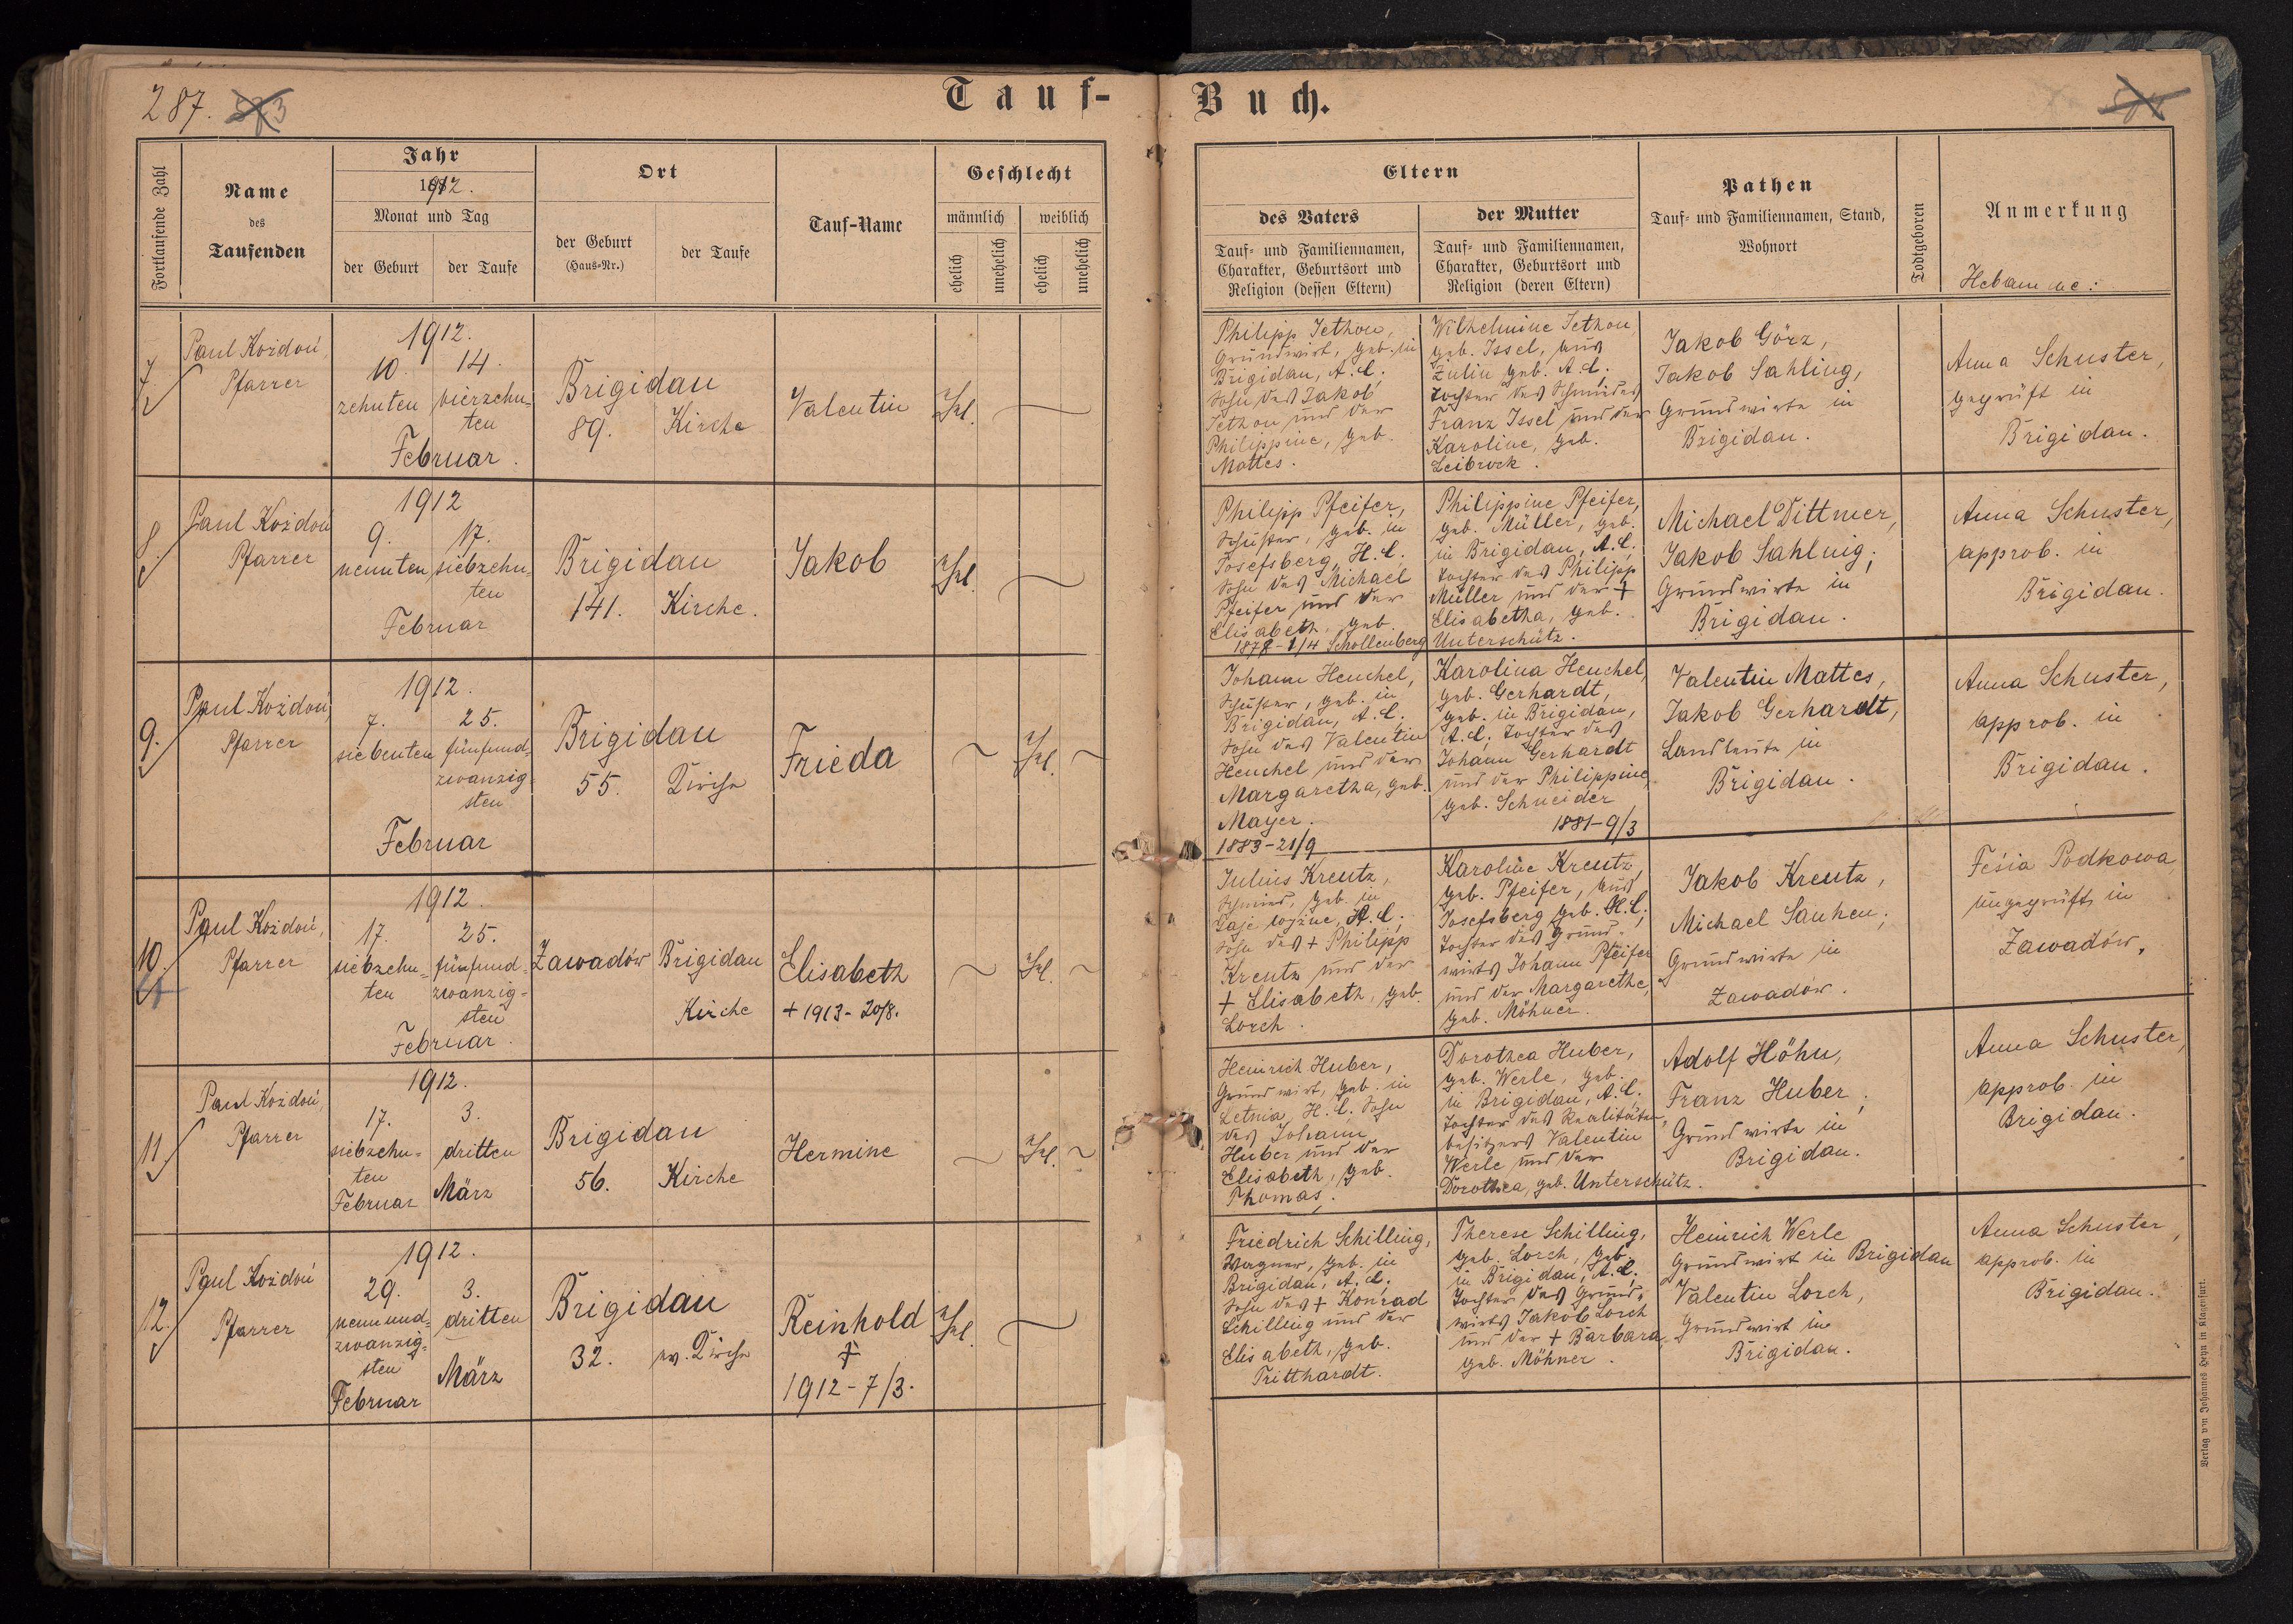 287.
Tauf-
Buch.
Fortlaufende Zahl
Name
des
Taufenden
Jahr
1912.
Monat und Tag
der Geburt
der Taufe
Ort
der Geburt
(Haus-Nr.)
der Taufe
Tauf-Name
Geschlecht
männlich
weiblich
ehelich
unehelich
ehelich
unehelich
Eltern
des Vaters
Tauf- und Familiennamen,
Charakter, Geburtsort und
Religion (dessen Eltern)
der Mutter
Tauf- und Familiennamen,
Charakter, Geburtsort und
Religion (deren Eltern)
Pathen
Tauf- und Familiennamen, Stand,
Wohnort
Todtgeboren
Anmerkung
Hebamme:
7.
Paul Kożdoń,
Pfarrer
1912.
10.
zehnten
14.
vierzehn-
ten
Februar.
Brigidau
89.
Kirche
Valentin
Ehel.
Philipp Jethon,
Grundwirt, geb. in
Brigidau, A.C.
Sohn des Jakob
Jethon und der
Philippine, geb.
Mattes.
Wilhelmine Jethon,
geb. Issel, aus
Zulin geb. A.C.
Tochter des Schmiedes
Franz Issel und der
Karoline, geb.
Leibrock.
Jakob Görz,
Jakob Sahling,
Grundwirte in
Brigidau.
Anna Schuster,
geprüft in
Brigidau.
8.
Paul Kożdoń
Pfarrer
1912
9.
neunten
17.
siebzehn-
ten
Februar
Brigidau
141.
Kirche.
Jakob
Ehel.
Philipp Pfeifer,
Schuster, geb. in
Josefsberg, H.C.
Sohn des Michael
Pfeifer und der
Elisabeth, geb.
1878-1/4 Schollenberg
Philippine Pfeifer,
geb. Müller, geb.
in Brigidau, A.C.;
Tochter des Philipp
Müller und der +
Elisabetha, geb.
Unterschütz.
Michael Dittmer,
Jakob Sahling;
Grundwirte in
Brigidau.
Anna Schuster,
approb. in
Brigidau.
9.
Paul Kożdoń,
Pfarrer
1912.
7.
siebenten
25.
fünfund-
zwanzig-
sten
Februar
Brigidau
55.
Kirche
Frieda
Ehel.
Johann Henchel,
Schuster, geb. in
Brigidau, A.C.
Sohn des Valentin
Henchel und der
Margaretha, geb.
Mayer.
1883-21/9
Karolina Henchel,
geb. Gerhardt,
geb. in Brigidau,
A.C. Tochter des
Johann Gerhardt
und der Philippine,
geb. Schneider
1881-9/3
Valentin Mattes,
Jakob Gerhardt,
Landleute in
Brigidau.
Anna Schuster,
approb. in
Brigidau.
10.
Paul Kożdoń,
Pfarrer
1912.
17.
siebzehn-
ten
25.
fünfund-
zwanzig-
sten
Februar.
Zawadów
Brigidau
Kirche
Elisabeth
+ 1913-20/8.
Ehel.
Julius Kreutz,
Schmied, geb. in
Gaje wyżne, A.C.;
Sohn des + Philipp
Kreutz und der
+ Elisabeth, geb.
Lorch.
Karoline Kreutz,
geb. Pfeifer, aus
Josefsberg geb. H.C.;
Tochter des Grund-
wirts Johann Pfeifer
und der Margarethe,
geb. Möhner.
Jakob Kreutz,
Michael Sauhen;
Grundwirte in
Zawadów.
Feśia Podkowa,
ungeprüft, in
Zawadów.
11.
Paul Kożdoń,
Pfarrer
1912.
17.
siebzehn-
ten
Februar
3.
dritten
März
Brigidau
56.
Kirche
Hermine
Ehel.
Heinrich Huber,
Grundwirt, geb. in
Letnia, H.C. Sohn
des Johann
Huber und der
Elisabeth, geb.
Thomas.
Dorothea Huber,
geb. Werle, geb.
in Brigidau, A.C.
Tochter des Realitäten-
besitzers Valentin
Werle und der
Dorothea, geb. Unterschütz.
Adolf Höhn,
Franz Huber;
Grundwirte in
Brigidau.
Anna Schuster,
approb. in
Brigidau.
12.
Paul Kożdoń
Pfarrer
1912.
29.
neunund-
zwanzig-
sten
Februar
3.
dritten
März
Brigidau
32.
ev. Kirche
Reinhold
+
1912-7/3.
Ehel.
Friedrich Schilling,
Wagner, geb. in
Brigidau, A.C.
Sohn des + Konrad
Schilling und der
Elisabeth, geb.
Tritthardt.
Therese Schilling,
geb. Lorch, geb.
in Brigidau, A.C.
Tochter des Grund-
wirts Jakob Lorch
und der + Barbara,
geb. Möhner.
Heinrich Werle
Grundwirt in Brigidau
Valentin Lorch,
Grundwirt in
Brigidau.
Anna Schuster,
approb. in
Brigidau.
Verlag von Johannes Heyn in Klagenfurt.